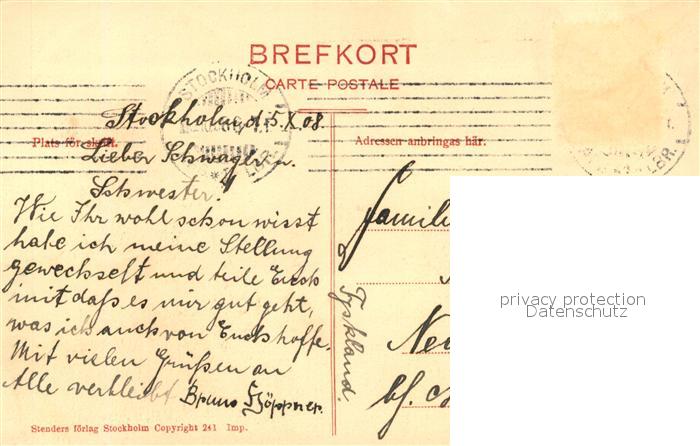 BREFKORT
CARTE POSTALE
STOCKHOLM
Stockholm d. 5.X.08.
Plats för
Adressen anbringas här.
Lieber Schwager u.
Schwester!
Wie Ihr wohl schon wisst
habe ich meine Stellung
gewechselt und teile Euch
mit daß es mir gut geht,
was ich auch von Euch hoffe.
Mit vielen Grüßen an
Alle verbleibt Bruno
Stenders förlag Stockholm Copyright 241 Imp.
Famili
Tyskland.
privacy protection
Datenschutz